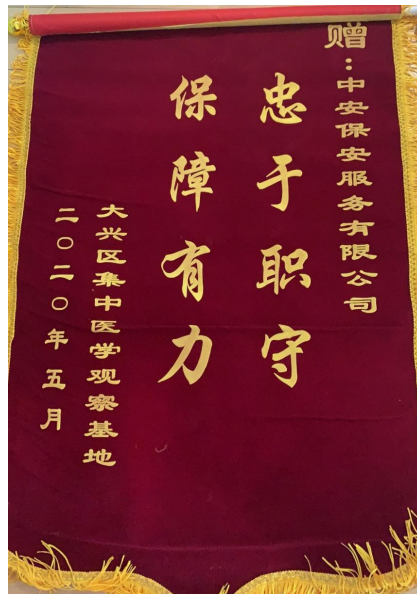 赠：中安保安服务有限公司
忠于职守
保障有力
大兴区集中医学观察基地
二〇二〇年五月